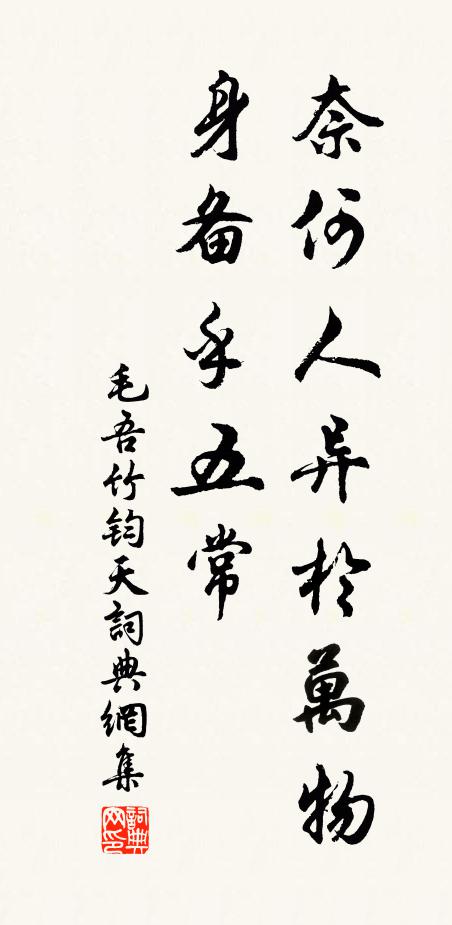 奈何人异於萬物
身备乎五常
毛吾竹钧天詞典網集
詞典
网印